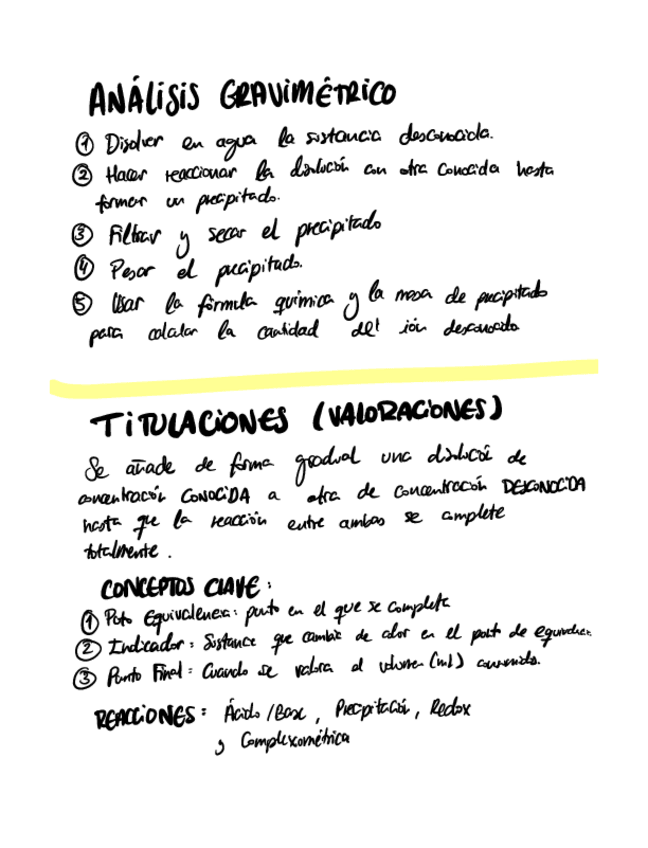 ANÁLISIS GRAVIMÉTRICO
① Disolver en agua la sustancia desconocida.
② Hacer reaccionar la disolución con otra conocida hasta
formar un precipitado.
③ Filtrar y secar el precipitado
④ Pesar el precipitado.
⑤ Usar la fórmula química y la masa de precipitado
para calcular la cantidad del ión desconocido
TITULACIONES (VALORACIONES)
Se añade de forma gradual una disolución de
concentración CONOCIDA a otra de concentración DESCONOCIDA
hasta que la reacción entre ambas se complete
totalmente.
CONCEPTOS CLAVE:
① Pto Equivalencia: punto en el que se completa
② Indicador: Sustancia que cambia de color en el punto de equivalen.
③ Punto Final: Cuando se valora el volumen (ml) consumido.
REACCIONES: Ácido/Base, Precipitación, Redox
y Complexométrica